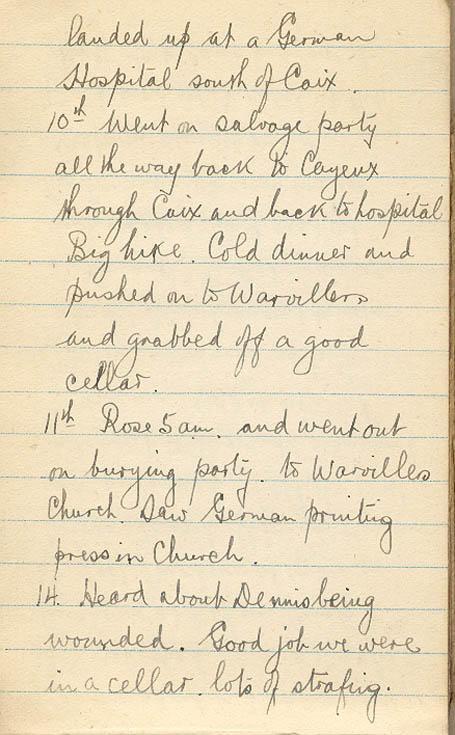 landed up at a German
Hospital south of Caix.
10th Went on salvage party
all the way back to Cayeux
through Caix and back to hospital
Big hike. Cold dinner and
pushed on to Warvillers
and grabbed off a good
cellar.
11th Rose 5 am. and went out
on burying party. to Warvillers
Church. Saw German printing
press in Church.
14. Heard about Dennis being
wounded. Good job we were
in a cellar. lots of strafing.